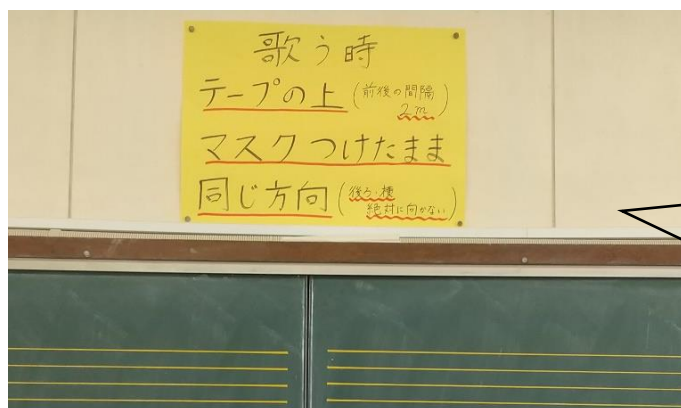 歌う時
テープの上(前後の間隔
2m)
マスクつけたまま
同じ方向(後ろ・横
絶対に向かない)